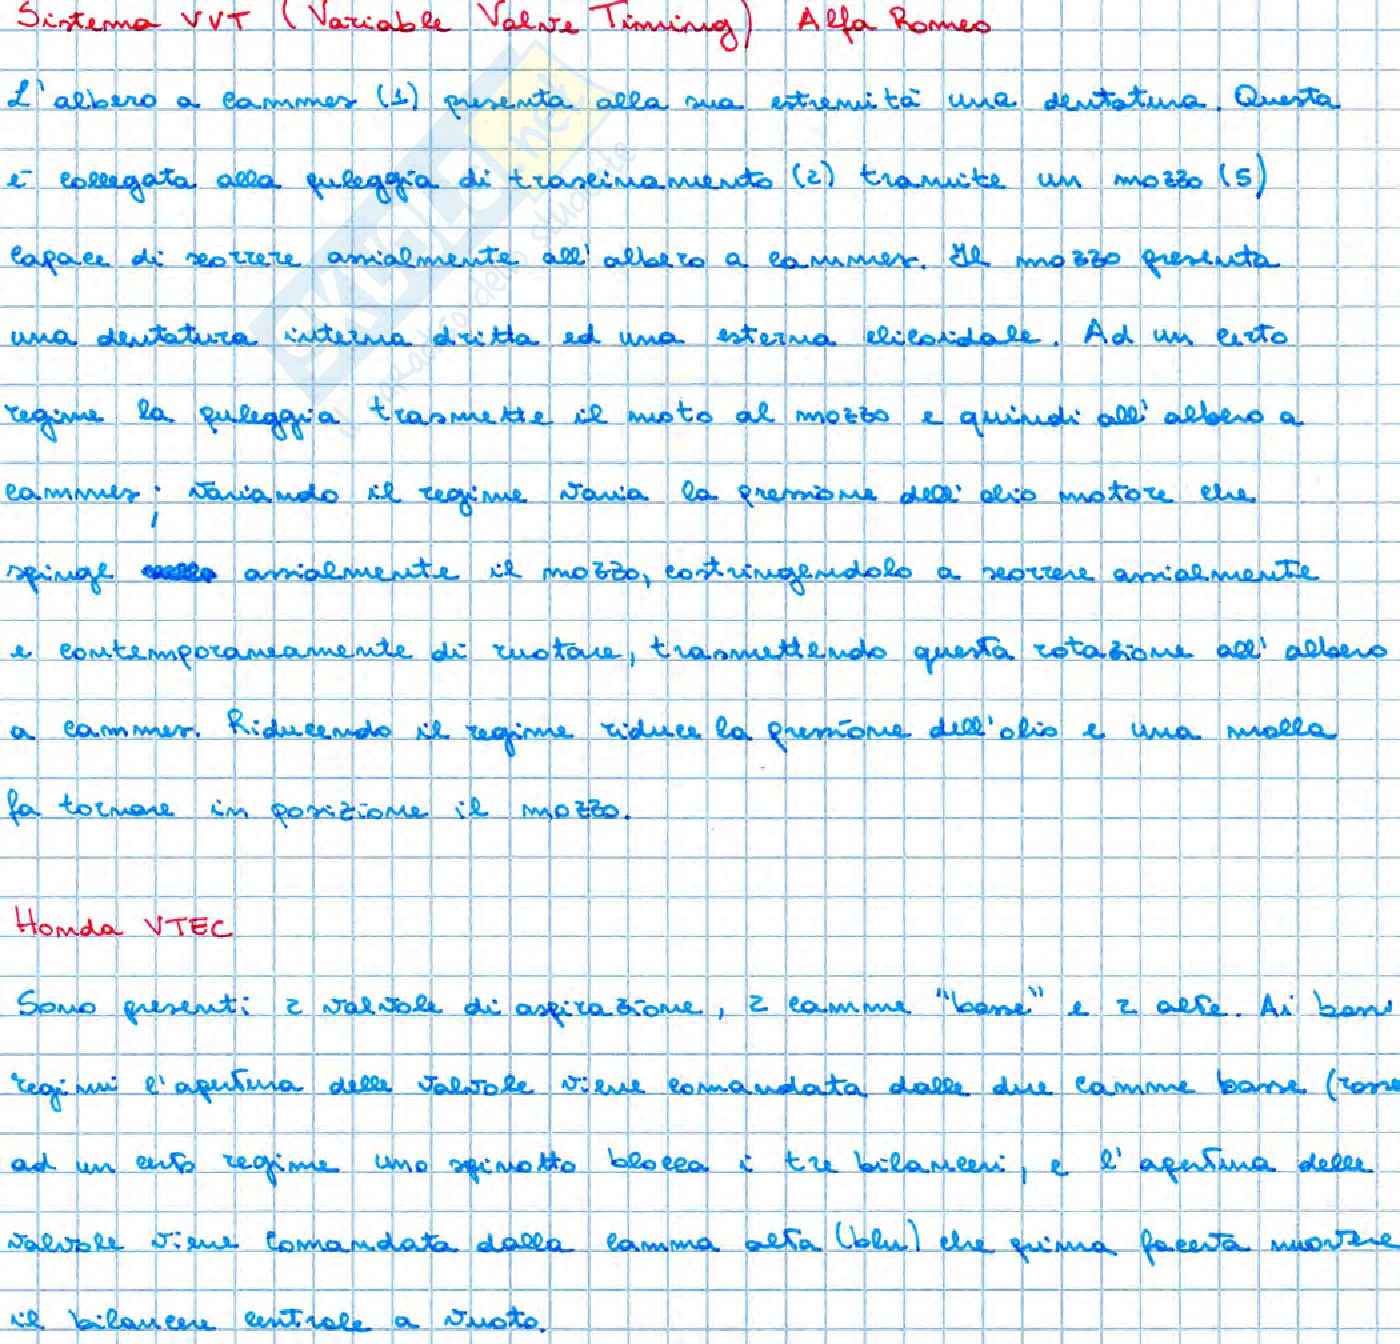 Sistema VVT (Variable Valve Timing) Alfa Romeo
L'albero a cammes (1) presenta alla sua estremità una dentatura. Questa
è collegata alla puleggia di trascinamento (2) tramite un mozzo (5)
capace di scorrere assialmente all'albero a cammes. Il mozzo presenta
una dentatura interna dritta ed una esterna elicoidale. Ad un certo
regime la puleggia trasmette il moto al mozzo e quindi all'albero a
cammes; variando il regime varia la pressione dell'olio motore che
spinge assialmente il mozzo, costringendolo a scorrere assialmente
e contemporaneamente di ruotare, trasmettendo questa rotazione all'albero
a cammes. Riducendo il regime riduce la pressione dell'olio e una molla
fa tornare in posizione il mozzo.
Honda VTEC
Sono presenti: 2 valvole di aspirazione, 2 camme "basse" e 2 alte. Ai bassi
regimi l'apertura delle valvole viene comandata dalle due camme basse (rosse
ad un certo regime uno spinotto blocca i tre bilanceri, e l'apertura delle
valvole viene comandata dalla camma alta (blu) che prima faceva muovere
il bilancere centrale a vuoto.